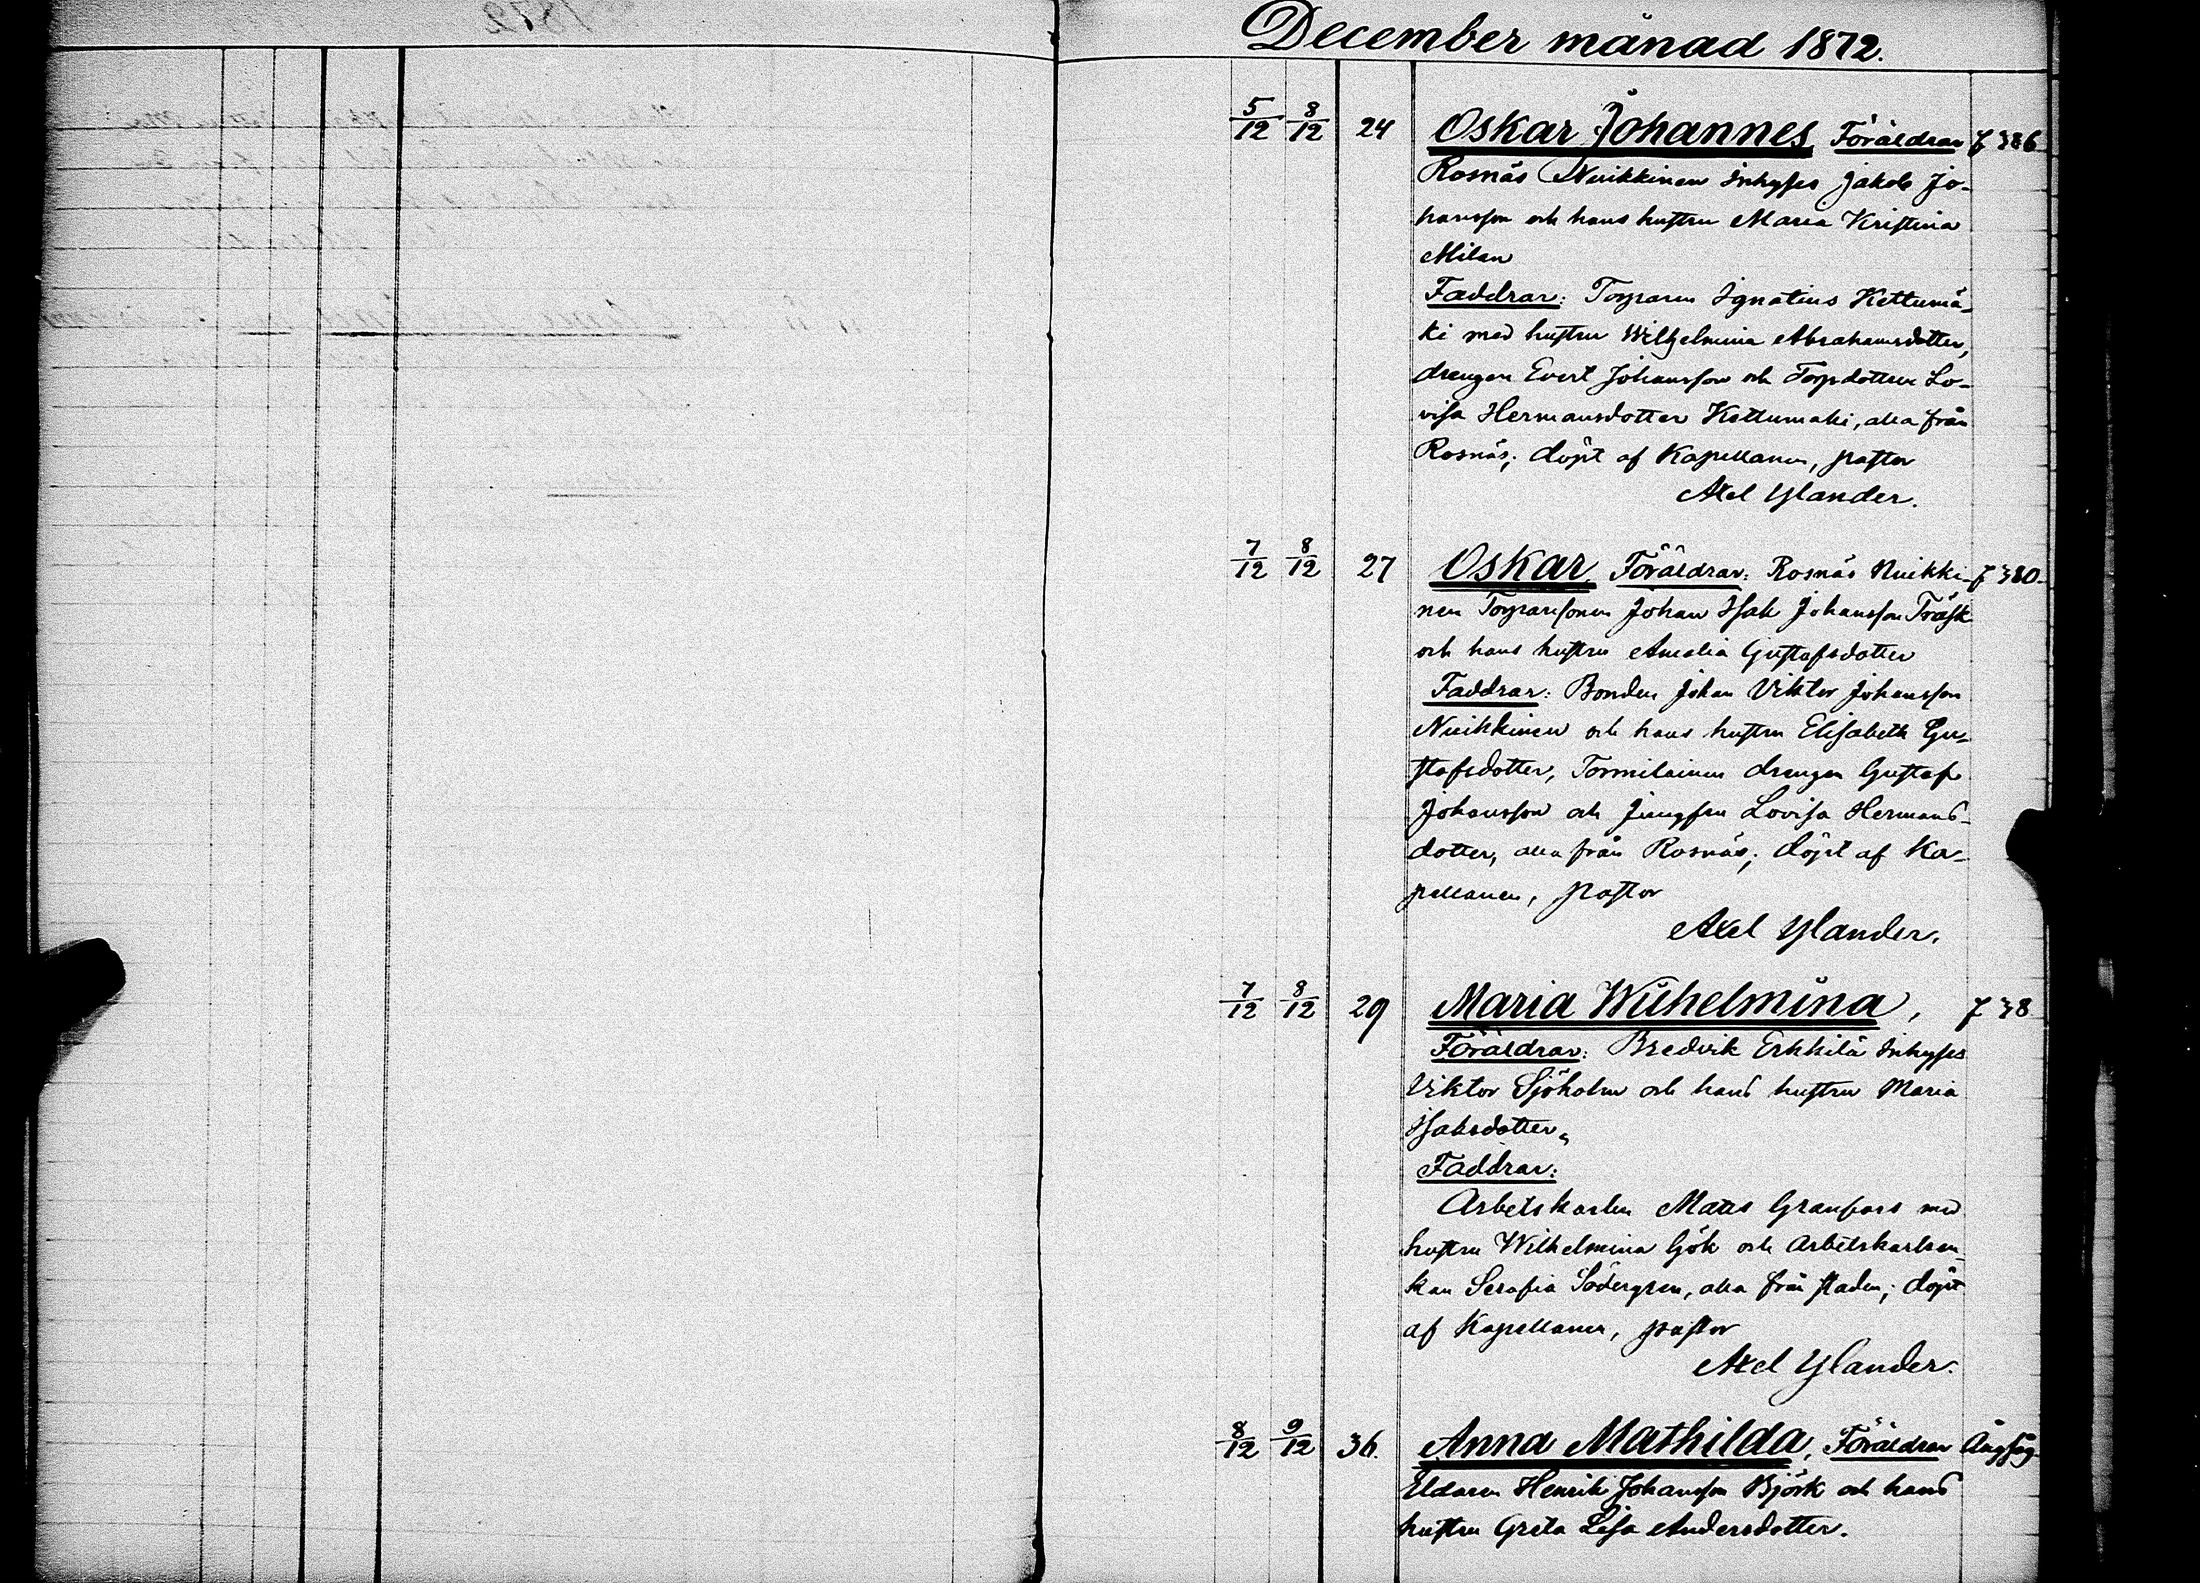 December månad 1872.
5/12 8/12 24 Oskar Johannes Föräldrar f 386
Rosnäs Nuikkinen Inhyses Jakob Jo-
hansson och hans hustru Maria Kristina
Milan
Faddrar: Torparen Ignatius Kettumä-
ki med hustru Wilhelmina Abrahamsdotter,
drengen Evert Johansson och Torpdottren Lo-
visa Hermansdotter Kettumaki, alla från
Rosnäs; döpt af Kapellanen, pastor
Axel Ylander.
7/12 8/12 27 Oskar Föräldrar: Rosnäs Nuikki- f 380
nen Torparesonen Johan Isak Johansson Träsk
och hans hustru Amalia Gustafsdotter
Faddrar: Bonden Johan Viktor Johansson
Nuikkinen och hans hustru Elisabeth Gu-
stafsdotter, Tormilainen drengen Gustaf
Johansson och Jungfru Lovisa Hermans-
dotter, alla från Rosnäs; döpt af Ka-
pellanen, pastor
Axel Ylander.
7/12 8/12 29 Maria Wilhelmina, f 38
Föräldrar: Bredvik Erkkilä Inhyses
Viktor Sjöholm och hans hustru Maria
Isaksdotter
Faddrar:
Arbetskarlen Mats Granfors med
hustru Wilhelmina Gök och Arbetskarlsen-
kan Serafia Södergren, alla från staden; döpt
af Kapellanen, pastor
Axel Ylander.
8/12 9/12 36. Anna Mathilda, Föräldrar Ångsåg
Eldaren Henrik Johansson Björk och hans
hustru Greta Lisa Andersdotter.